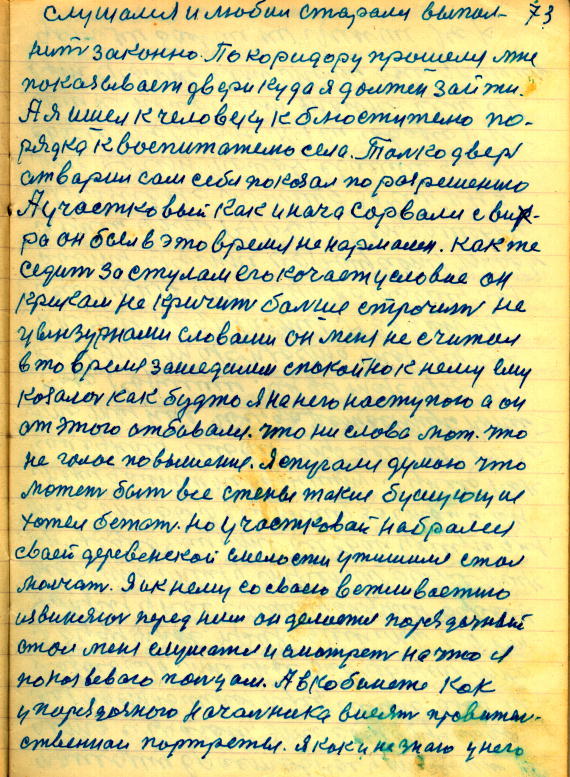 слушался и любил старался выпол- 73
нит законно. По коридору прошелся мне
показывает двери куда я должен зайти.
А я шел к человеку к блюстителю по-
рядка к воспитателю села. Толко двер
атварил сам себя показал по разрешению
А участковый как иначе сорвался с вих-
ра он был в это время не нармален. Как же
седит за стулам его качает условие он
крикам не кричит болше строчит не
цвензурнами словами он меня не считал
в то время зашедшим спокойно к нему ему
козалос как будто я на него наступаю а он
от этого отбивался. что ни слова мат. что
не голос повышение. Я спугался думаю что
может быт все стены такие бушующие
хотел бежат. Но участковай набрался
сваей деревенской смелости утишился стал
молчат. Я и к нему со своею вежливастию
извиняюс перед ним он делается порядочный
стал меня слушатся и смотрет на что я
показеваю палцам. А в кабинете как
у порядочного началника висят правител-
ственнаи портреты. я как и не знаю у него